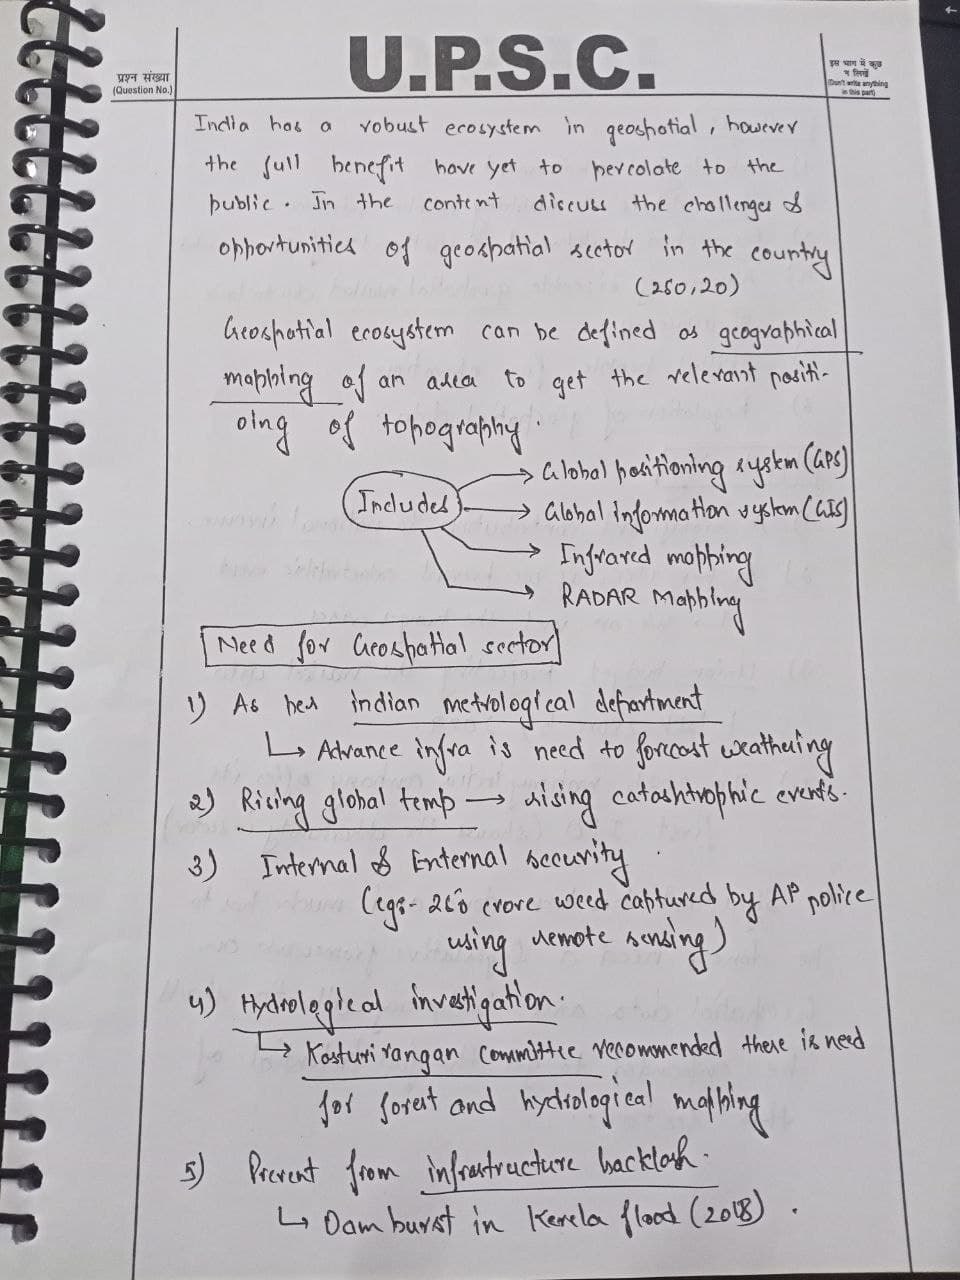 U.P.S.C.
प्रश्न संख्या
(Question No.)
इस भाग में कुछ
न लिखें
(Don't write anything
in this part)
India has a robust ecosystem in geospatial, however
the full benefit have yet to percolate to the
public. In the content discuss the challenges &
opportunities of geospatial sector in the country
(250,20)
Geospatial ecosystem can be defined as geographical
mapping of an area to get the relevant positi-
oing of topography.
Includes
Global positioning system (GPS)
Global information system (GIS)
Infrared mapping
RADAR Mapping
Need for Geospatial sector
1) As per indian metrological department
↳ Advance infra is need to forcast weathering
2) Rising global temp → rising catashtrophic events.
3) Internal & External security.
(egs- 260 crore weed captured by AP police
using remote sensing)
4) Hydrological investigation.
↳ Kasturirangan committee recommended there is need
for forest and hydrological mapping
5) Prevent from infrastructure backlash.
↳ Dam burst in Kerela flood (2018).